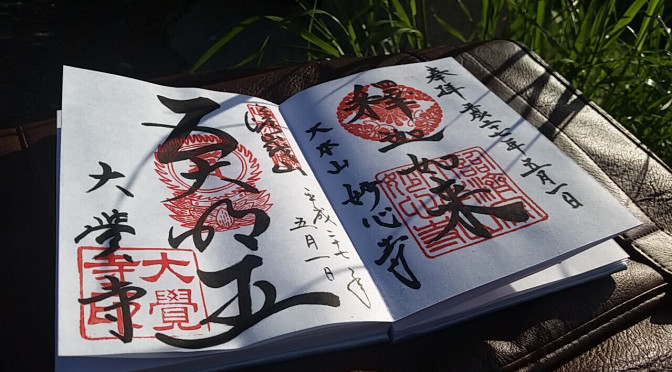 奉拝 平成二十七年五月一日
釋迦如来
大本山 妙心寺
平成二十七年
五月一日
五大明王
大覺寺
大覺
寺印